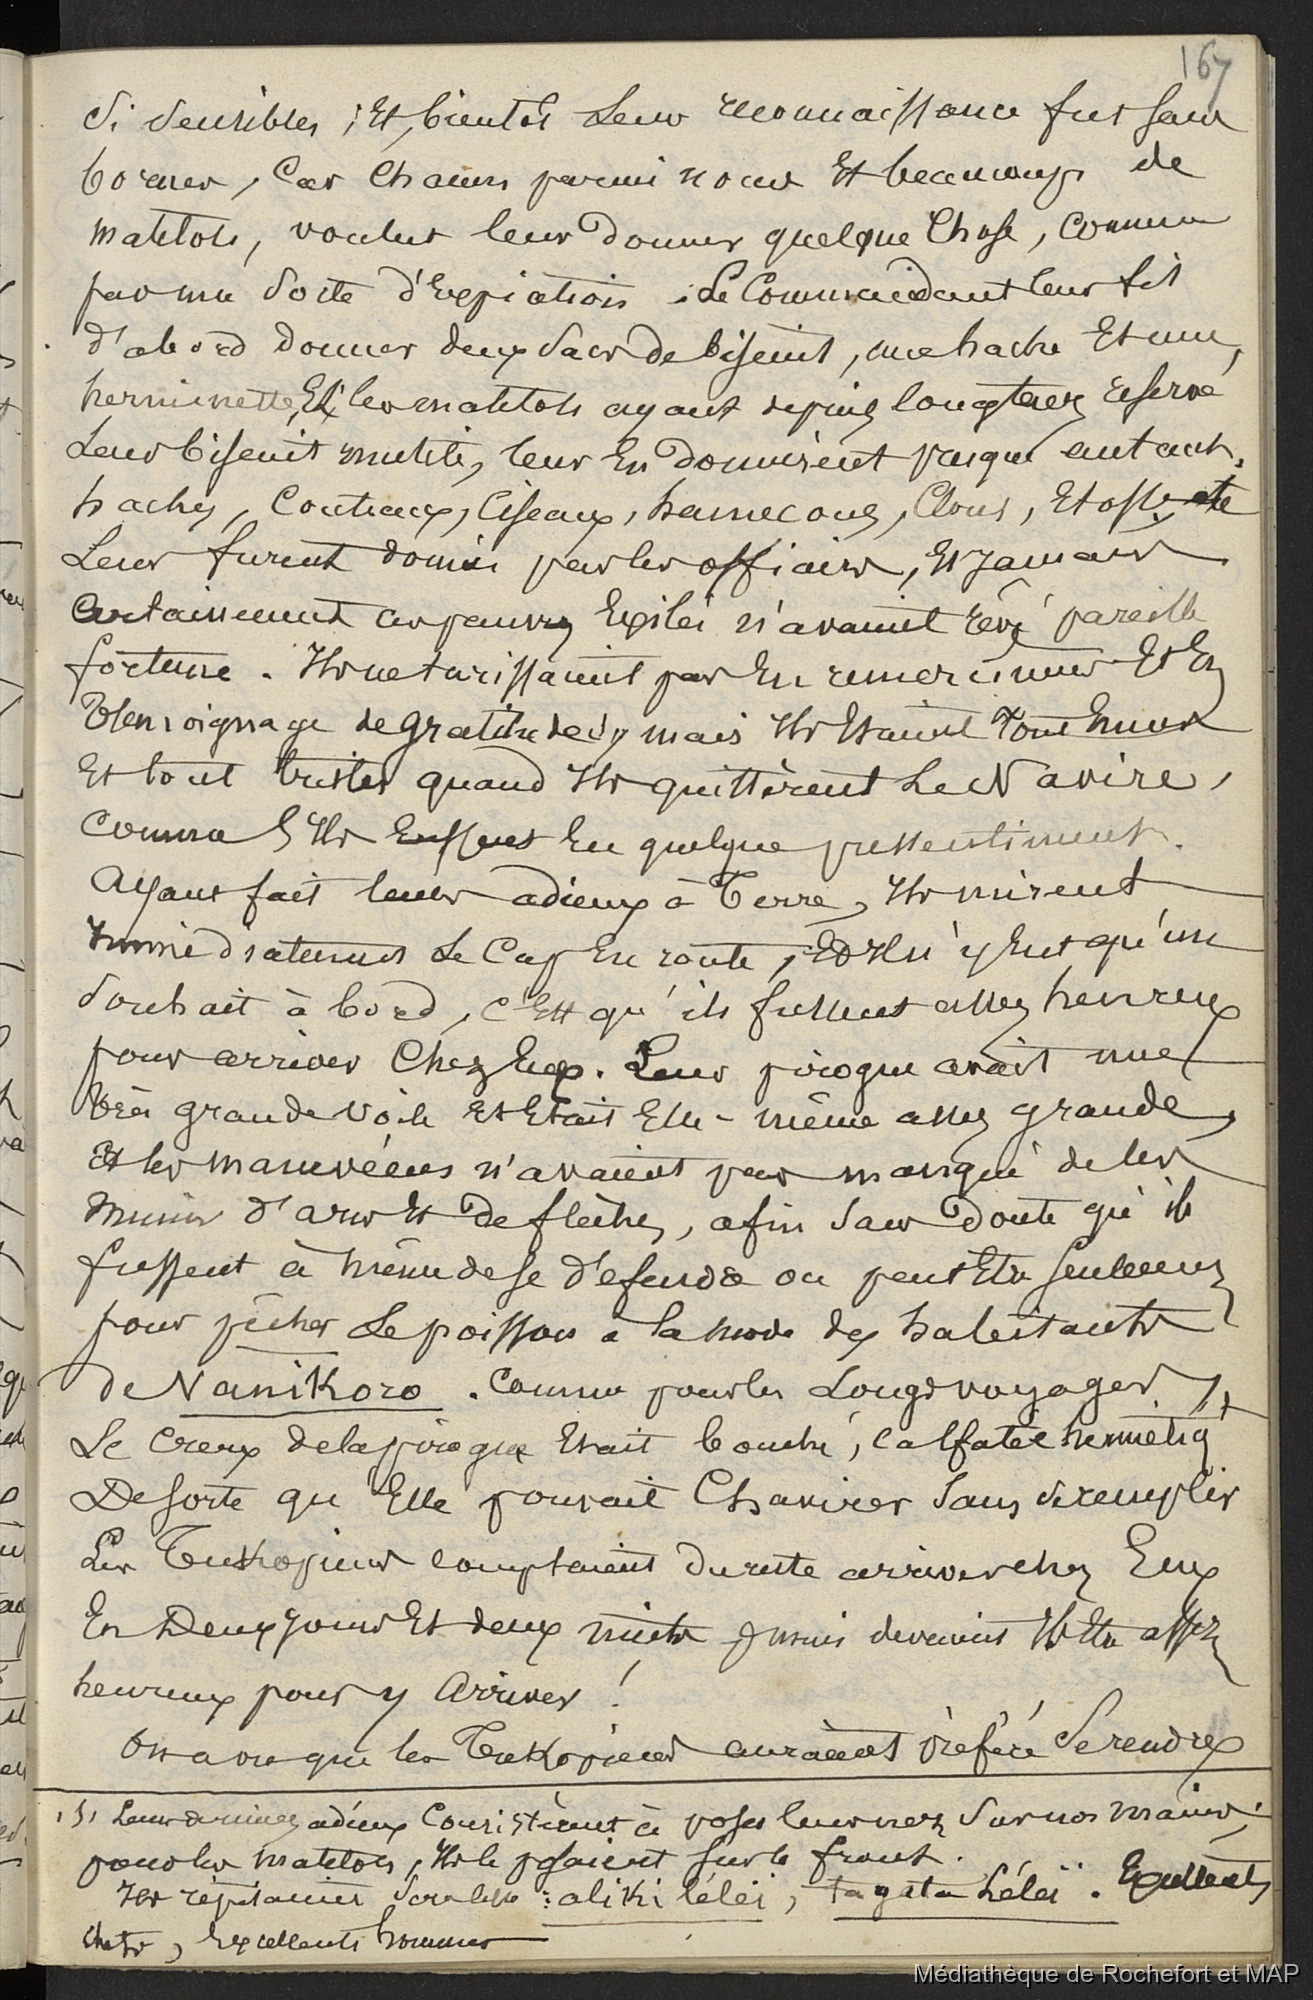 167
si sensibles ; Et bientôt Leur reconnaissance fut sans
bornes, Car Chacun parmi nous Et beaucoup de
matelots, voulut leur Donner quelque Chose, Comme
par une Sorte d'Expiation. Le Commandant leur fit
d'abord Donner deux Sacs de biscuit, une hache Et une
herminette, Et les matelots ayant depuis longtems réservé
Leur biscuit mutité, leur En Donnèrent presque autant.
haches, Couteaux, Ciseaux, hamecons, Clous, Etoffe
Leur furent donnés par les officiers, Et jamais
Certainement ces pauvres Exilés n'avaient rêvé pareille
fortune. Ils ne tarissaient pas En remerciemens Et En
Témoignage de gratitude (1) mais Ils Etaient Tout Emus
Et tout tristes quand Ils quittèrent Le Navire,
Comme S'Ils Eussent Eu quelque pressentiment.
Ayant fait leurs adieux à Terre, Ils mirent
Immédiatement Le Cap En route, Et Il n'y Eut qu'un
Souhait à bord, C'Est qu'ils fussent assez heureux
pour arriver Chez Eux. Leur pirogue avait une
très grande voile Et Etait Elle-même assez grande,
Et les manevéens n'avaient pas manqué de les
munir d'arcs Et De flèches, afin Sans Doute qu'ils
fussent à même de se d'efendre ou peut Etre seulement
pour pêcher Le poisson à la mode des habitants
de Vanikoro. Comme pour les Longs voyages,
Le Creux de la pirogue Etait bouché, Calfaté hermétiq^t
De sorte qu'Elle pouvait Chavirer Sans Se remplir
Les Tukopiens comptaient Du reste arriver chez Eux
En Deux jours Et deux nuits puis devaient Ils Etre assez
heureux pour y Arriver !
On a vu que les Tukopiens auraient préféré Se rendre
(1) Leurs derniers adieux Consistèrent à poser leur nez Sur nos mains;
pour les matelots, Ils le posaient sur le front.
Ils répétaient Sans cesse : aliki léleï, tagata léleï. Excellents
Chefs, Excellents hommes
Médiathèque de Rochefort et MAP